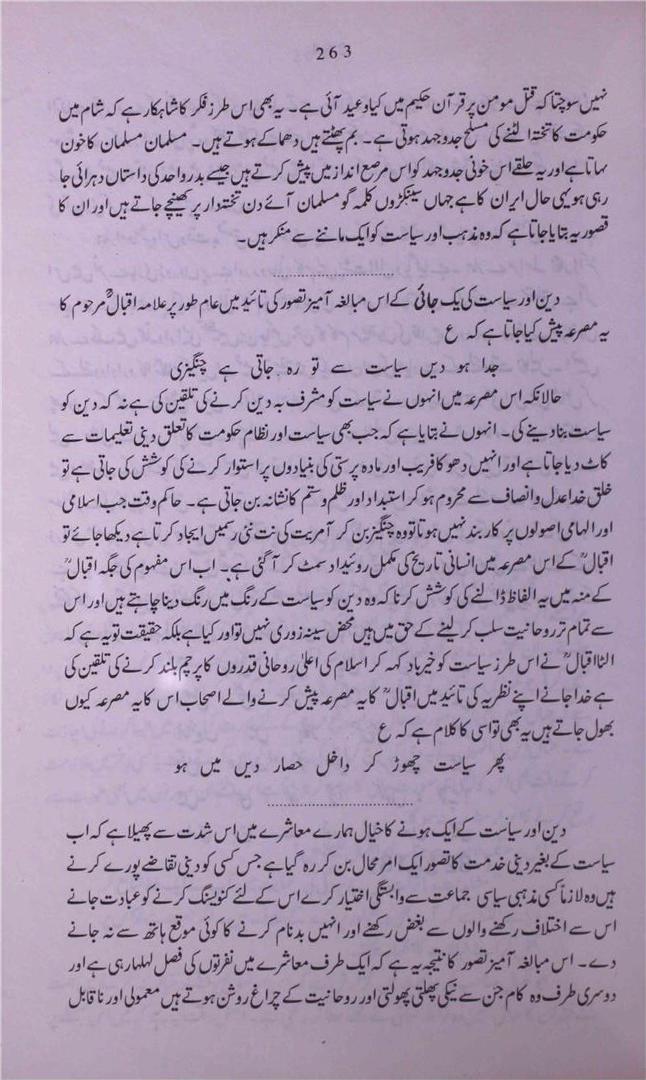 263
نہیں سوچتا کہ قتل مومن پر قرآن حکیم میں کیا وعید آئی ہے۔ یہ بھی اس طرز فکر کا شاہکار ہے کہ شام میں
حکومت کا تختہ الٹنے کی مسلح جدوجہد ہوتی ہے۔ بم پھٹتے ہیں دھماکے ہوتے ہیں۔ مسلمان مسلمان کا خون
بہاتا ہے اور یہ حلقے اس خونی جدوجہد کو اس مرصع انداز میں پیش کرتے ہیں جیسے بدر و احد کی داستاں دہرائی جا
رہی ہو یہی حال ایران کا ہے جہاں سینکڑوں کلمہ گو مسلمان آئے دن تختہ دار پر کھینچے جاتے ہیں اور ان کا
قصور یہ بتایا جاتا ہے کہ وہ مذہب اور سیاست کو ایک ماننے سے منکر ہیں۔
دین اور سیاست کی یک جائی کے اس مبالغہ آمیز تصور کی تائید میں عام طور پر علامہ اقبالؒ مرحوم کا
یہ مصرعہ پیش کیا جاتا ہے کہ ع
جدا ہو دیں سیاست سے تو رہ جاتی ہے چنگیزی
حالانکہ اس مصرعہ میں انہوں نے سیاست کو مشرف بہ دین کرنے کی تلقین کی ہے نہ کہ دین کو
سیاست بنا دینے کی۔ انہوں نے بتایا ہے کہ جب بھی سیاست اور نظام حکومت کا تعلق دینی تعلیمات سے
کاٹ دیا جاتا ہے اور انہیں دھوکا فریب اور مادہ پرستی کی بنیادوں پر استوار کرنے کی کوشش کی جاتی ہے تو
خلق خدا عدل و انصاف سے محروم ہو کر استبداد اور ظلم و ستم کا نشانہ بن جاتی ہے۔ حاکم وقت جب اسلامی
اور الہامی اصولوں پر کاربند نہیں ہوتا تو وہ چنگیز بن کر آمریت کی نت نئی رسمیں ایجاد کرتا ہے دیکھا جائے تو
اقبالؒ کے اس مصرعہ میں انسانی تاریخ کی مکمل روئیداد سمٹ کر آ گئی ہے۔ اب اس مفہوم کی جگہ اقبالؒ
کے منہ میں یہ الفاظ ڈالنے کی کوشش کرنا کہ وہ دین کو سیاست کے رنگ میں رنگ دینا چاہتے ہیں اور اس
سے تمام تر روحانیت سلب کر لینے کے حق میں ہیں محض سینہ زوری نہیں تو اور کیا ہے بلکہ حقیقت تو یہ ہے کہ
الٹا اقبالؒ نے اس طرز سیاست کو خیرباد کہہ کر اسلام کی اعلیٰ روحانی قدروں کا پرچم بلند کرنے کی تلقین کی
ہے خدا جانے اپنے نظریہ کی تائید میں اقبالؒ کا یہ مصرعہ پیش کرنے والے اصحاب اس کا یہ مصرعہ کیوں
بھول جاتے ہیں یہ بھی تو اسی کا کلام ہے کہ ع
پھر سیاست چھوڑ کر داخل حصار دیں میں ہو
دین اور سیاست کے ایک ہونے کا خیال ہمارے معاشرے میں اس شدت سے پھیلا ہے کہ اب
سیاست کے بغیر دینی خدمت کا تصور ایک امر محال بن کر رہ گیا ہے جس کسی کو دینی تقاضے پورے کرنے
ہیں وہ لازماً کسی مذہبی سیاسی جماعت سے وابستگی اختیار کرے اس کے لئے کنویسنگ کرنے کو عبادت جانے
اس سے اختلاف رکھنے والوں سے بغض رکھنے اور انہیں بدنام کرنے کا کوئی موقع ہاتھ سے نہ جانے
دے۔ اس مبالغہ آمیز تصور کا نتیجہ یہ ہے کہ ایک طرف معاشرے میں نفرتوں کی فصل لہلہا رہی ہے اور
دوسری طرف وہ کام جن سے نیکی پھلتی پھولتی اور روحانیت کے چراغ روشن ہوتے ہیں معمولی اور ناقابل